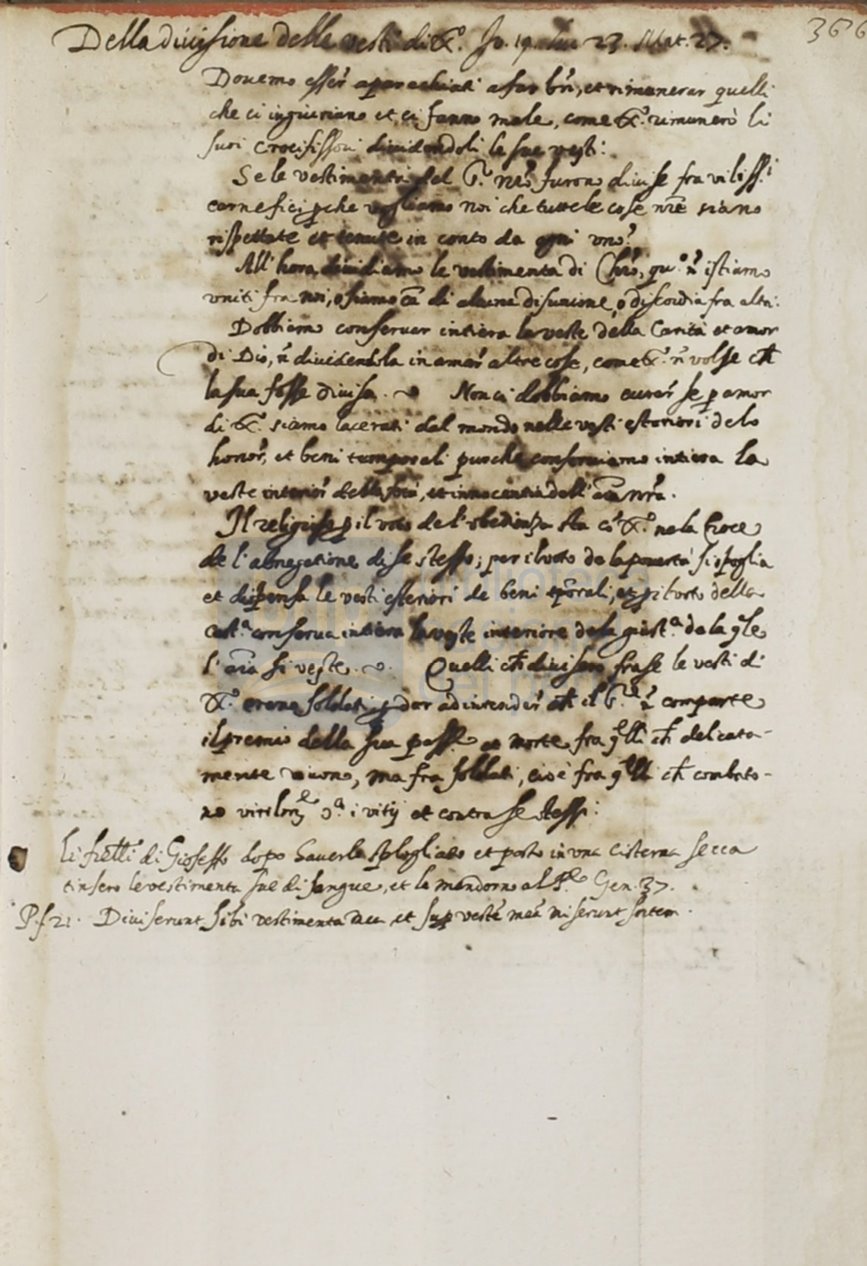 366
Della divisione delle vesti di X.o Jo. 19. Luc 23. Mat. 27.
Dovemo esser aparechiati a far bñ, et rimunerar quelli
che ci ingiuriano et ci fanno male, come X.o rimunerò li
suoi crocifissori dividendoli le sue vesti:
Se le vestimenta del S.r nrõ furono divise fra viliss.i
carnefici pche vogliamo noi che tutte le cose nrẽ siano
rispettate et tenute in conto da ogni uno?
All'hora dividiamo le vestimenta di Chrõ, qu.o ñ istiamo
uniti fra noi, o siamo cã di alcuna disunione, o discordia fra altri.
Dobbiamo conservar intiera la veste della Carità et amor
di Dio, ñ dividendola in amar altre cose, come X.o ñ volse ch
la sua fosse divisa. Non ci dobbiamo curar se p amor
di X.o siamo lacerati dal mondo nelle vesti esteriori de lo
honor, et beni temporali purche conserviamo intiera la
veste interior della et innocentia dell' aĩa nrã.
Il religioso p il voto de l'obedienza sta cõ X.o ne la Croce
de l'abnegatione di se stesso; per il voto de la povertà si spoglia
et dispensa le vesti esteriori de beni tp̃orali, et p il voto della
cast.a conserva intiera la veste interiore dela giust.a de la qle
l'aĩa si veste. Quelli ch divisero fra se le vesti di
X.o erano soldati p dar ad intender ch il S.r ñ comparte
il premio della sua pass.e et morte fra qlli ch delicata-
mente vivono, ma fra soldati, cioè fra qlli ch combato-
no virilm.e 9.a i vitij et contra se stessi:
li fratelli di Gioseffo dopo haverlo spogliato et posto in una cisterna secca
tinsero le vestimenta sue di sangue, et le mandorno al P.re Gen. 37.
Ps. 21. Diviserunt sibi vestimenta mea et sup vestẽ meã miserunt sortem.